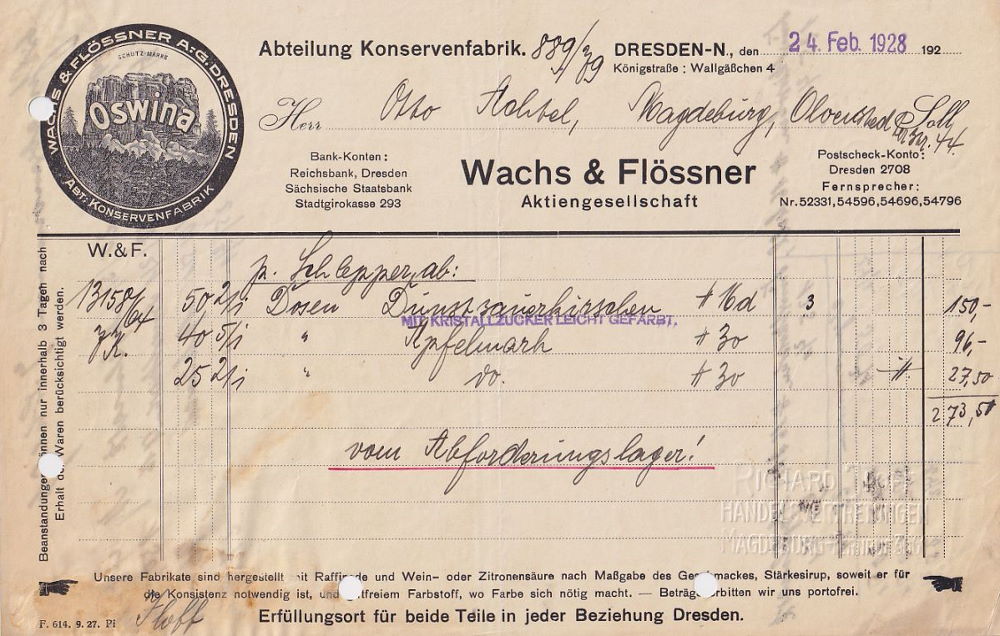 WACHS & FLÖSSNER A.-G. DRESDEN
SCHUTZ-MARKE
Oswina
ABT: KONSERVENFABRIK
Abteilung Konservenfabrik. 889/39 DRESDEN-N., den 24. Feb. 1928 192
Königstraße : Wallgäßchen 4
Herr Otto Achtel, Magdeburg,
44.
Bank-Konten:
Reichsbank, Dresden
Sächsische Staatsbank
Stadtgirokasse 293
Wachs & Flössner
Aktiengesellschaft
Postscheck-Konto:
Dresden 2708
Fernsprecher:
Nr. 52331, 54596, 54696, 54796
W. & F.
p. Schlepper ab:
50 2/1 Dosen Dunstsauerkirschen 3 150,-
MIT KRISTALLZUCKER LEICHT GEFÄRBT.
40 5/1 " Apfelmark # 30 96,-
25 2/1 " do. # 30 27,50
273,50
vom Abforderungslager!
Beanstandungen können nur innerhalb 3 Tagen nach
Erhalt der Waren berücksichtigt werden.
RICHARD
HANDELSVERTRETUNGEN
MAGDEBURG
Unsere Fabrikate sind hergestellt mit Raffinade und Wein- oder Zitronensäure nach Maßgabe des Geschmackes, Stärkesirup, soweit er für
die Konsistenz notwendig ist, und giftfreiem Farbstoff, wo Farbe sich nötig macht. — Beträge erbitten wir uns portofrei.
Erfüllungsort für beide Teile in jeder Beziehung Dresden.
F. 614. 9. 27. Pi